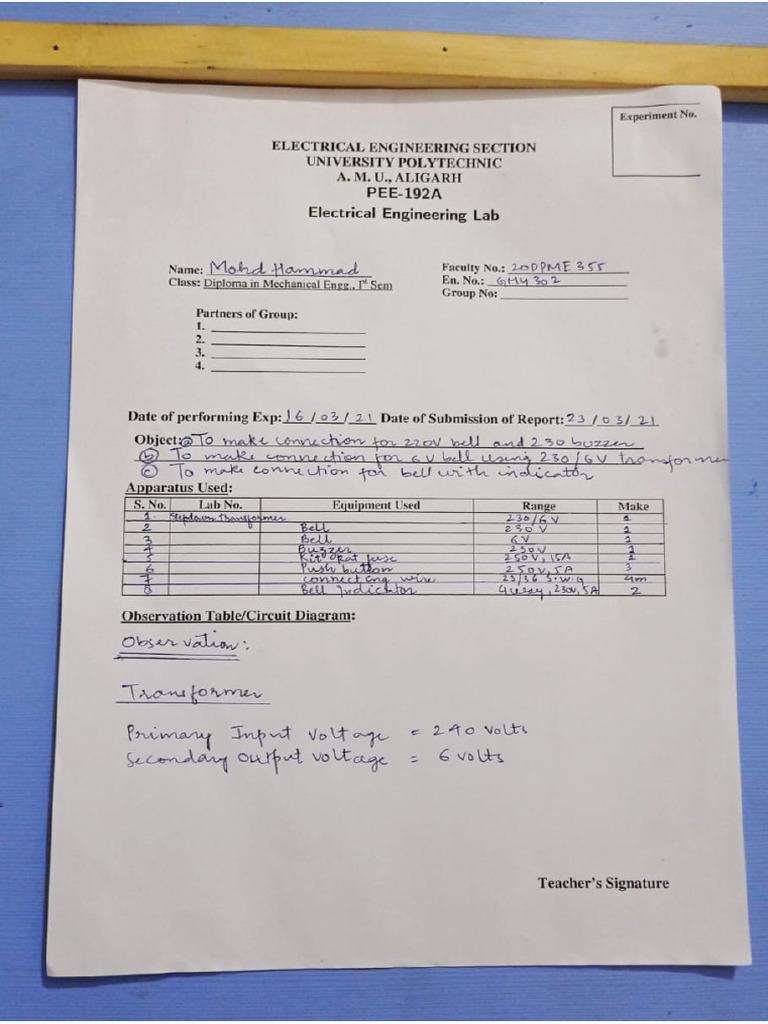 Experiment No.
ELECTRICAL ENGINEERING SECTION
UNIVERSITY POLYTECHNIC
A. M. U., ALIGARH
PEE-192A
Electrical Engineering Lab
Name: Mohd Hammad
Faculty No.: 20DPME355
Class: Diploma in Mechanical Engg., Ist Sem
En. No.: GMY302
Group No:
Partners of Group:
1.
2.
3.
4.
Date of performing Exp: 16/03/21 Date of Submission of Report: 23/03/21
Object: (a) To make connection for 220V bell and 230 buzzer
(b) To make connection for 6V bell using 230/6V transformer
(c) To make connection for bell with indicator
Apparatus Used:
S. No. Lab No. Equipment Used Range Make
1. Stepdown transformer 230/6V 1
2 Bell 230V 1
3 Bell 6V 1
4 Buzzer 250V 1
5 Kit Kat fuse 250V, 15A 1
6 Push button 250V, 5A 3
7 connecting wire 23/36 S.W.G 4m
8 Bell Indicator 230V, 5A 2
Observation Table/Circuit Diagram:
Observation:
Transformer
Primary Input Voltage = 240 volts
Secondary output voltage = 6 volts
Teacher's Signature